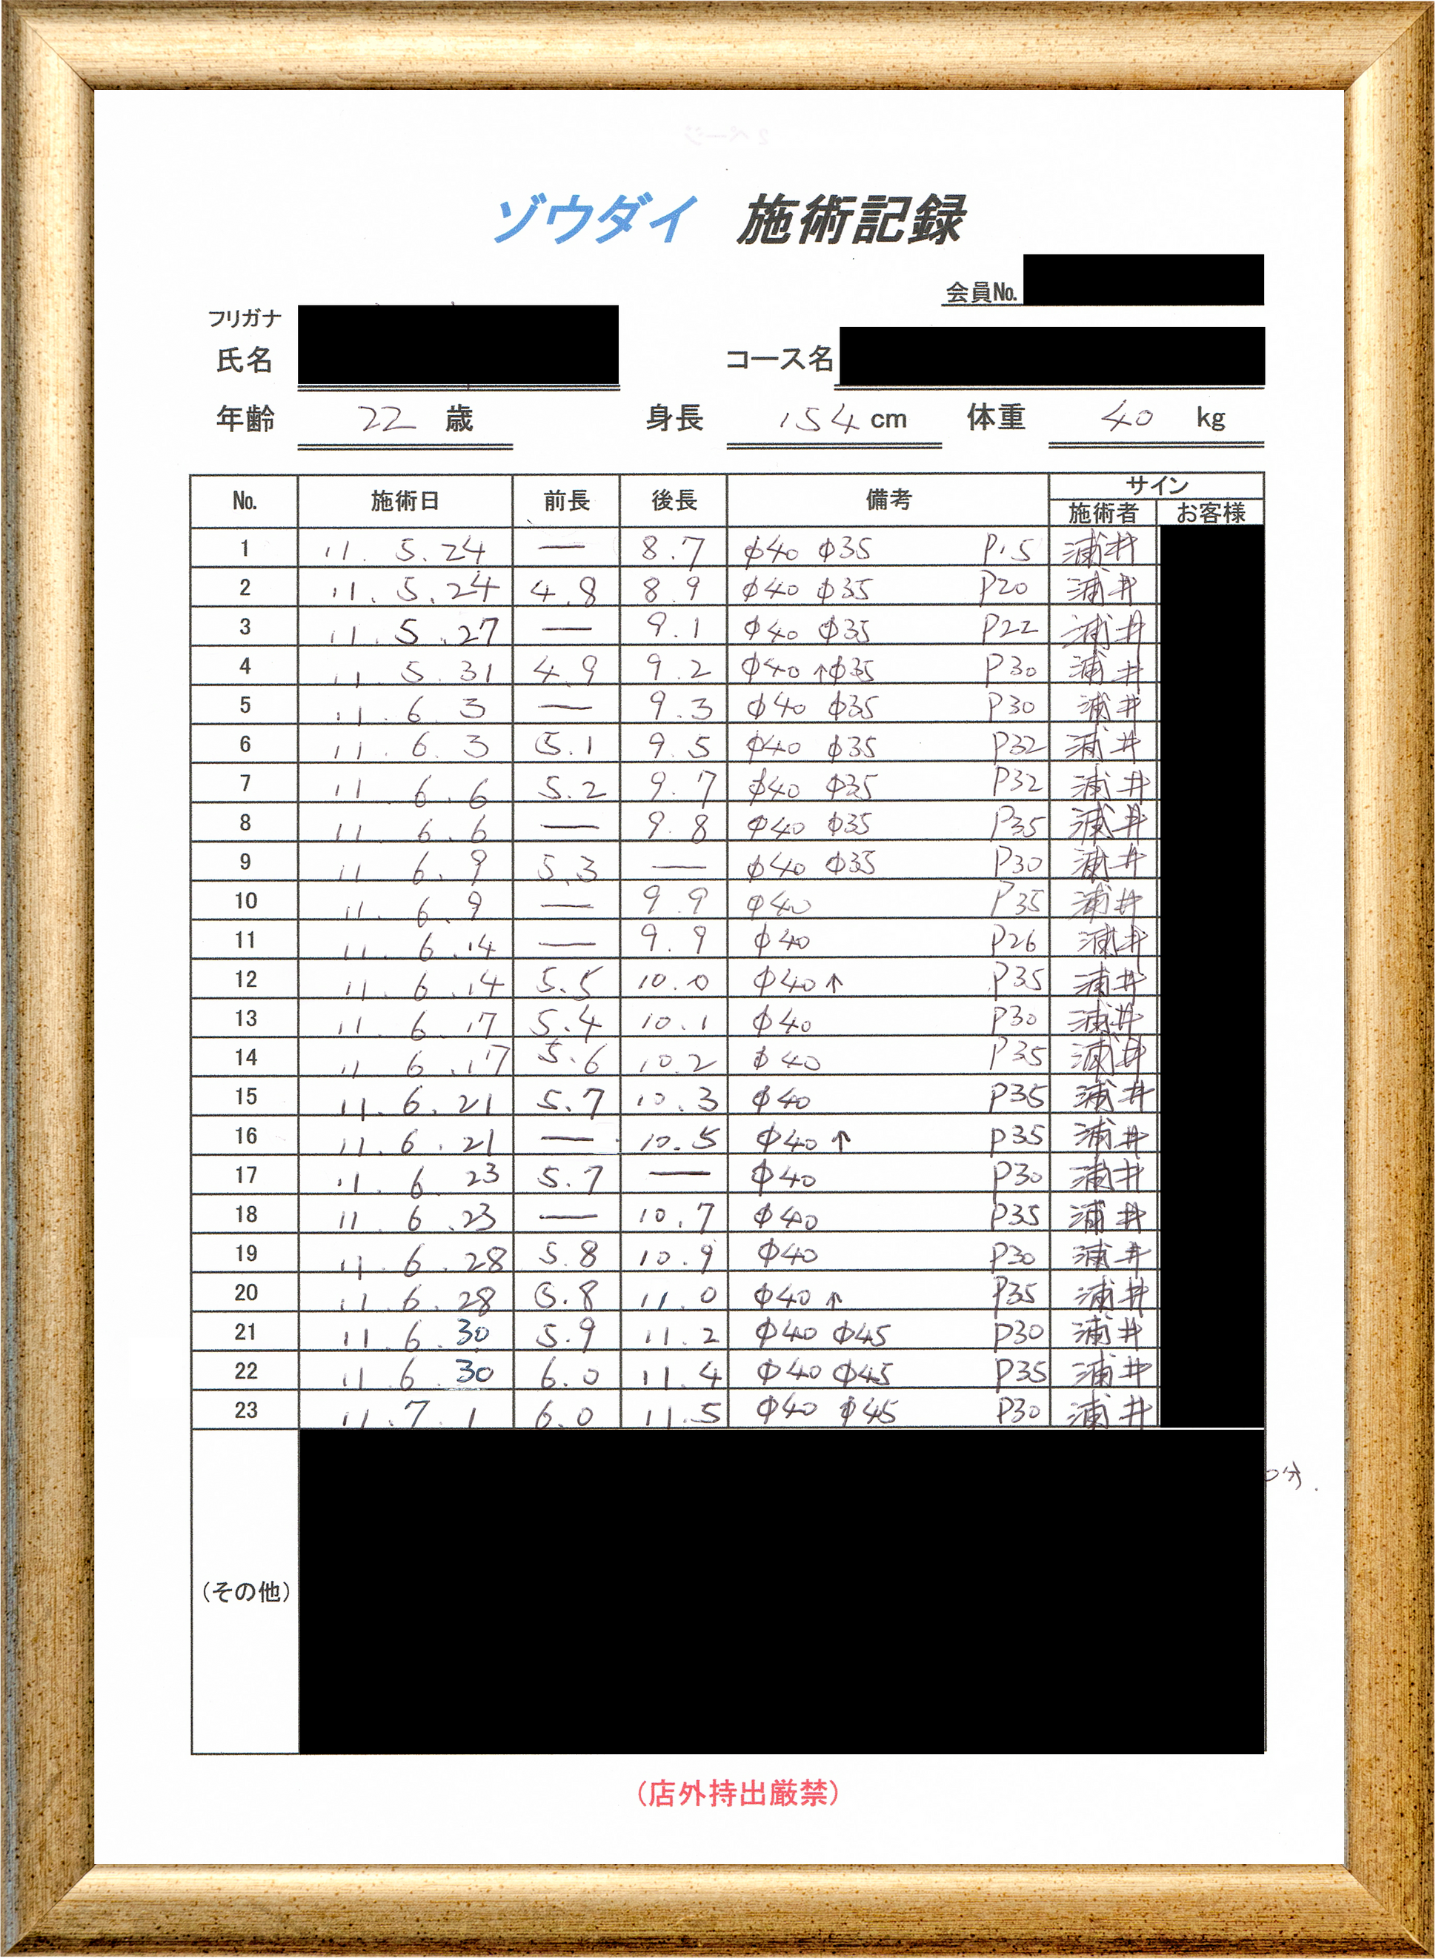 ゾウダイ 施術記録
会員No.
フリガナ
氏名 コース名
年齢 22 歳 身長 154 cm 体重 40 kg
No. 施術日 前長 後長 備考 サイン
施術者 お客様
1 11. 5. 24 — 8.7 φ40 φ35 P15 浦井
2 11. 5. 24 4.8 8.9 φ40 φ35 P20 浦井
3 11. 5. 27 — 9.1 φ40 φ35 P22 浦井
4 11. 5. 31 4.9 9.2 φ40 ↑φ35 P30 浦井
5 11. 6. 3 — 9.3 φ40 φ35 P30 浦井
6 11. 6. 3 5.1 9.5 φ40 φ35 P32 浦井
7 11 6. 6 5.2 9.7 φ40 φ35 P32 浦井
8 11 6. 6 — 9.8 φ40 φ35 P35 浦井
9 11 6. 9 5.3 — φ40 φ35 P30 浦井
10 11. 6. 9 — 9.9 φ40 P35 浦井
11 11 6. 14 — 9.9 φ40 P26 浦井
12 11. 6. 14 5.5 10.0 φ40↑ P35 浦井
13 11 6. 17 5.4 10.1 φ40 P30 浦井
14 11 6. 17 5.6 10.2 φ40 P35 浦井
15 11. 6. 21 5.7 10.3 φ40 P35 浦井
16 11. 6. 21 — 10.5 φ40↑ P35 浦井
17 11. 6. 23 5.7 — φ40 P30 浦井
18 11. 6. 23 — 10.7 φ40 P35 浦井
19 11. 6. 28 5.8 10.9 φ40 P30 浦井
20 11. 6. 28 5.8 11.0 φ40 ↑ P35 浦井
21 11. 6. 30 5.9 11.2 φ40 φ45 P30 浦井
22 11. 6. 30 6.0 11.4 φ40 φ45 P35 浦井
23 11. 7. 1 6.0 11.5 φ40 φ45 P30 浦井
0分.
(その他)
(店外持出厳禁)